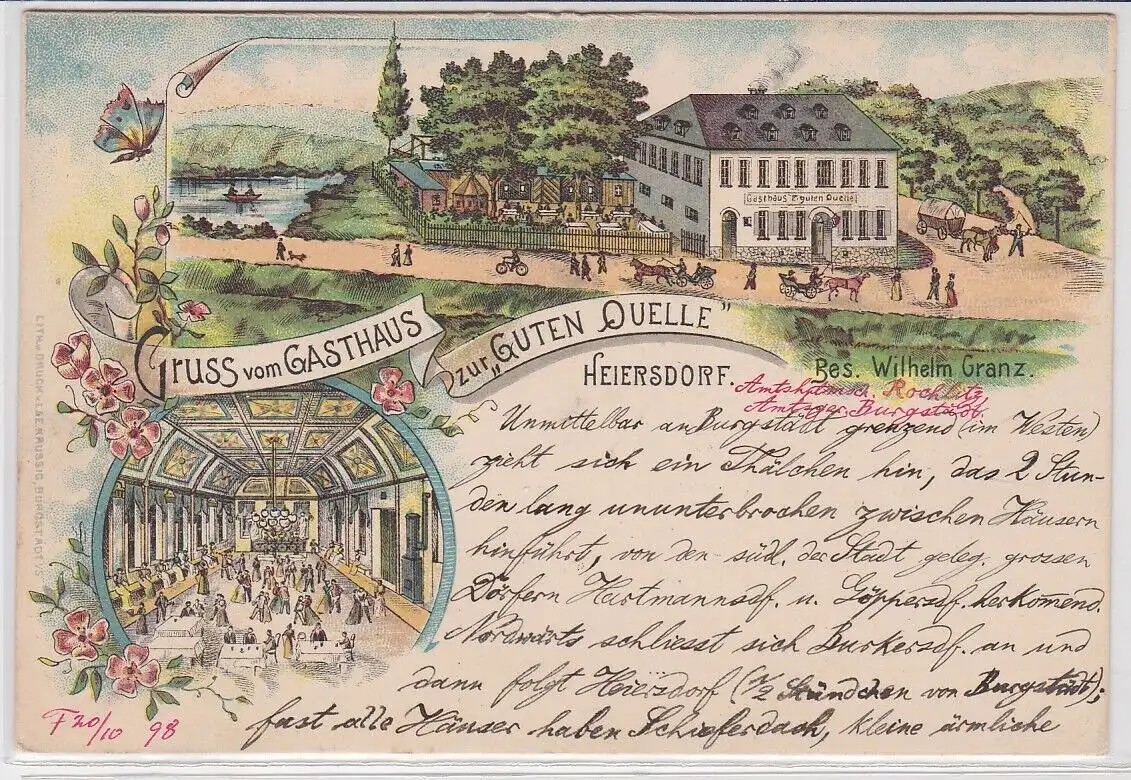 Gasthaus z. guten Quelle
Gruss vom GASTHAUS
zur „GUTEN QUELLE"
HEIERSDORF.
Bes. Wilhelm Granz.
Amtshptmsch. Rochlitz,
Amtsger. Burgstädt.
Unmittelbar an Burgstädt grenzend (im Westen)
zieht sich ein Thälchen hin, das 2 Stun-
den lang ununterbrochen zwischen Häusern
hinführt, von den südl. der Stadt geleg. grossen
Dörfern Hartmannsdf. u. Göppersdf. herkomend.
Nordwärts schliesst sich Burkersdf. an und
dann folgt Heiersdorf (1/2 Stündchen von Burgstädt);
fast alle Häuser haben Schieferdach, kleine ärmliche
F 20/10 98
LITH. u. DRUCK v. BURGSTÄDT i/S